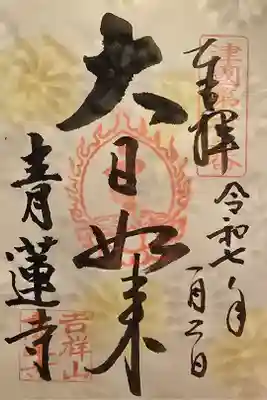 奉拝
令和七年
一月二日
大日如来
青蓮寺
吉祥山